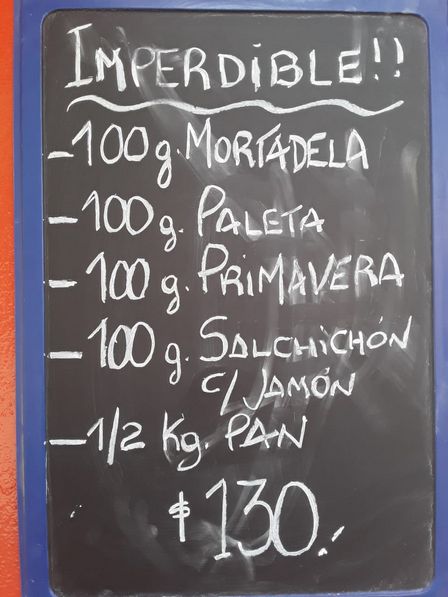 IMPERDIBLE!!
-100g. MORTADELA
-100g. PALETA
-100g. PRIMAVERA
-100g. SALCHICHÓN
C/JAMÓN
-1/2 Kg. PAN
$130.-